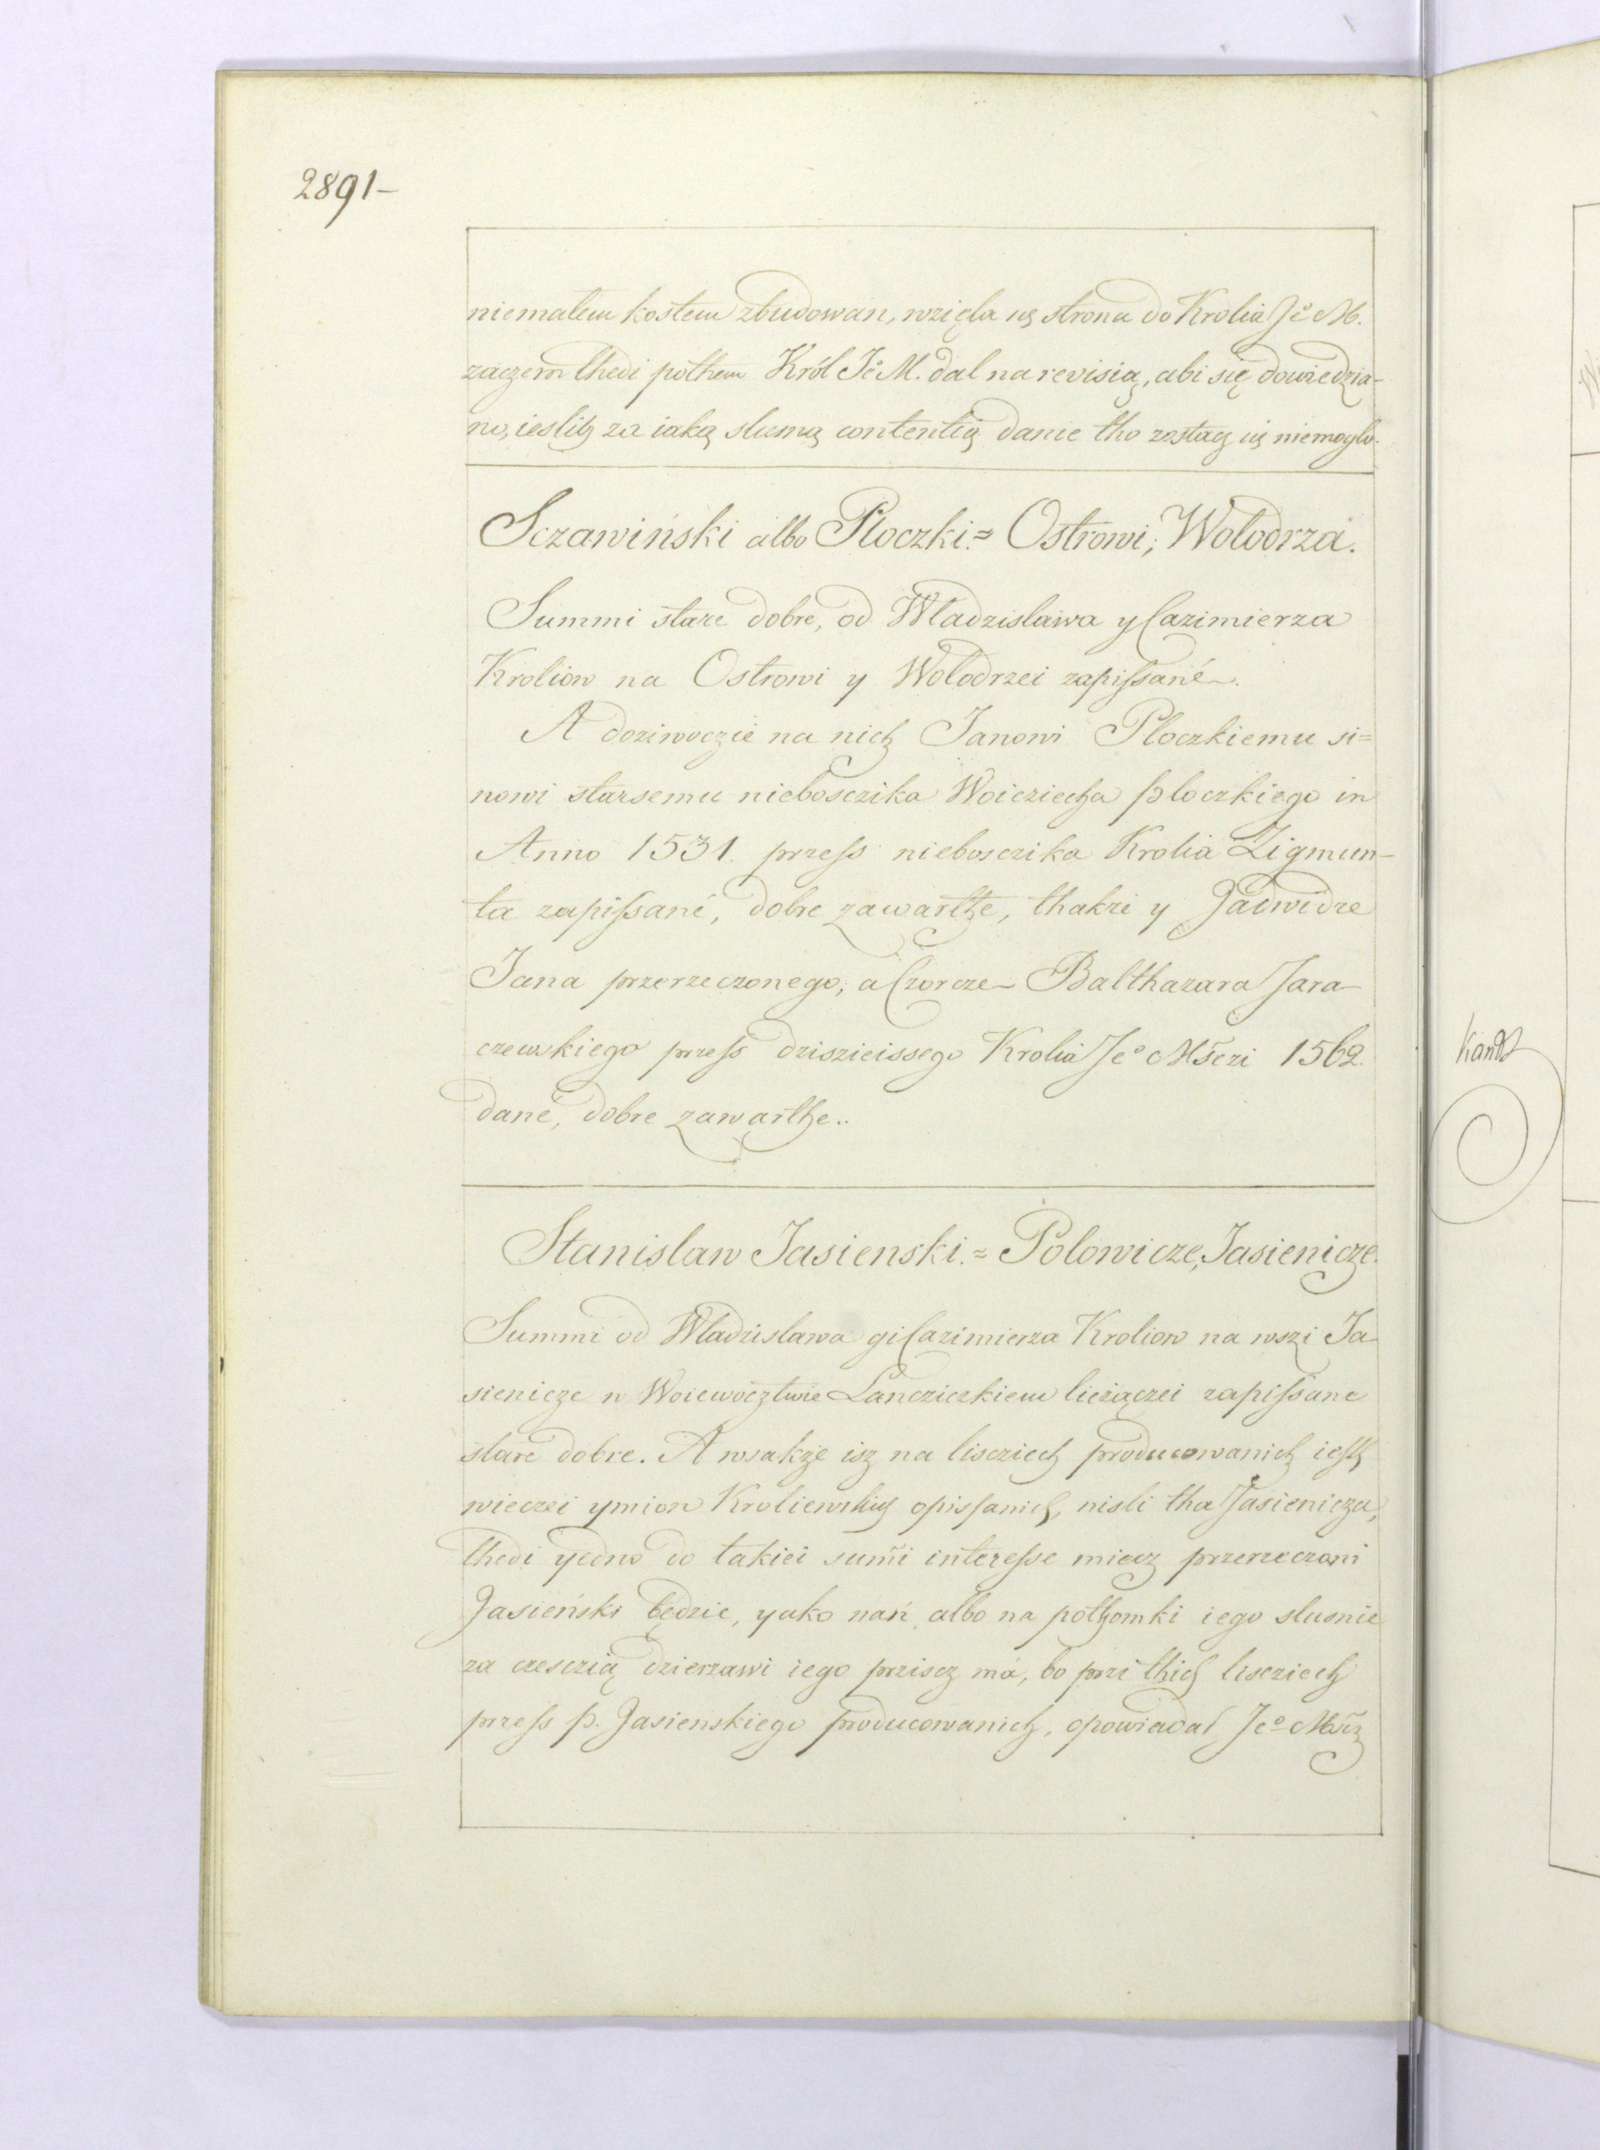 2891-
niemałem kosłem zbudowan, wzięla się strona do Krolia Jº M.
zaczem thedi pothem Król Jº M. dal na revisią, abi się dowiedzia-
no, ieslisz za iaką slumą contentią danie tho zostacz się niemoglo.
Sczawiński albo Ploczki.= Ostrowi, Wolodrza.
Summi stare dobre, od Wladzislawa y Cazimierza
Kroliow na Ostrowi y Wolodrzei zapissané.
A doziwoczie na nich Janowi Ploczkiemu si=
nowi starsemu nieboszczika Woicziecha ploczkiego in
Anno 1531. przess nieboszczika Krolia Zigmun-
ta zapissané, dobre zawarthe, thakze y Jadwidze
Jana przerzeczonego, a Czorcze Balthazara Jara-
czewskiego przess dziszieissego Krolia Jeº Mśczi 1562.
dané, dobre zawarthe..
Stanislaw Jasienski.= Polowicze, Jasienicze.
Summi od Wladzislawa yi Cazimierza Kroliow na wszi Ja-
sienicze w Woiewocztwie Lancziczkiem lieżączei zapissane
stare dobre. A wsakze isz na lisciech producowanich iesth
wieczei ymion Kroliewskich opissanich, nisli tha Jasienicza,
thedi yedno do takiei sum̃i interesse miecz przerzeczoni
Jasieński będzie, yako nań albo na pothomki iego slusnie
za czesczią dzierzawi iego prziscz má, bo przi thich liscziech
przess p. Jasienskiego producowanich, opowiadał Jeº Mścz